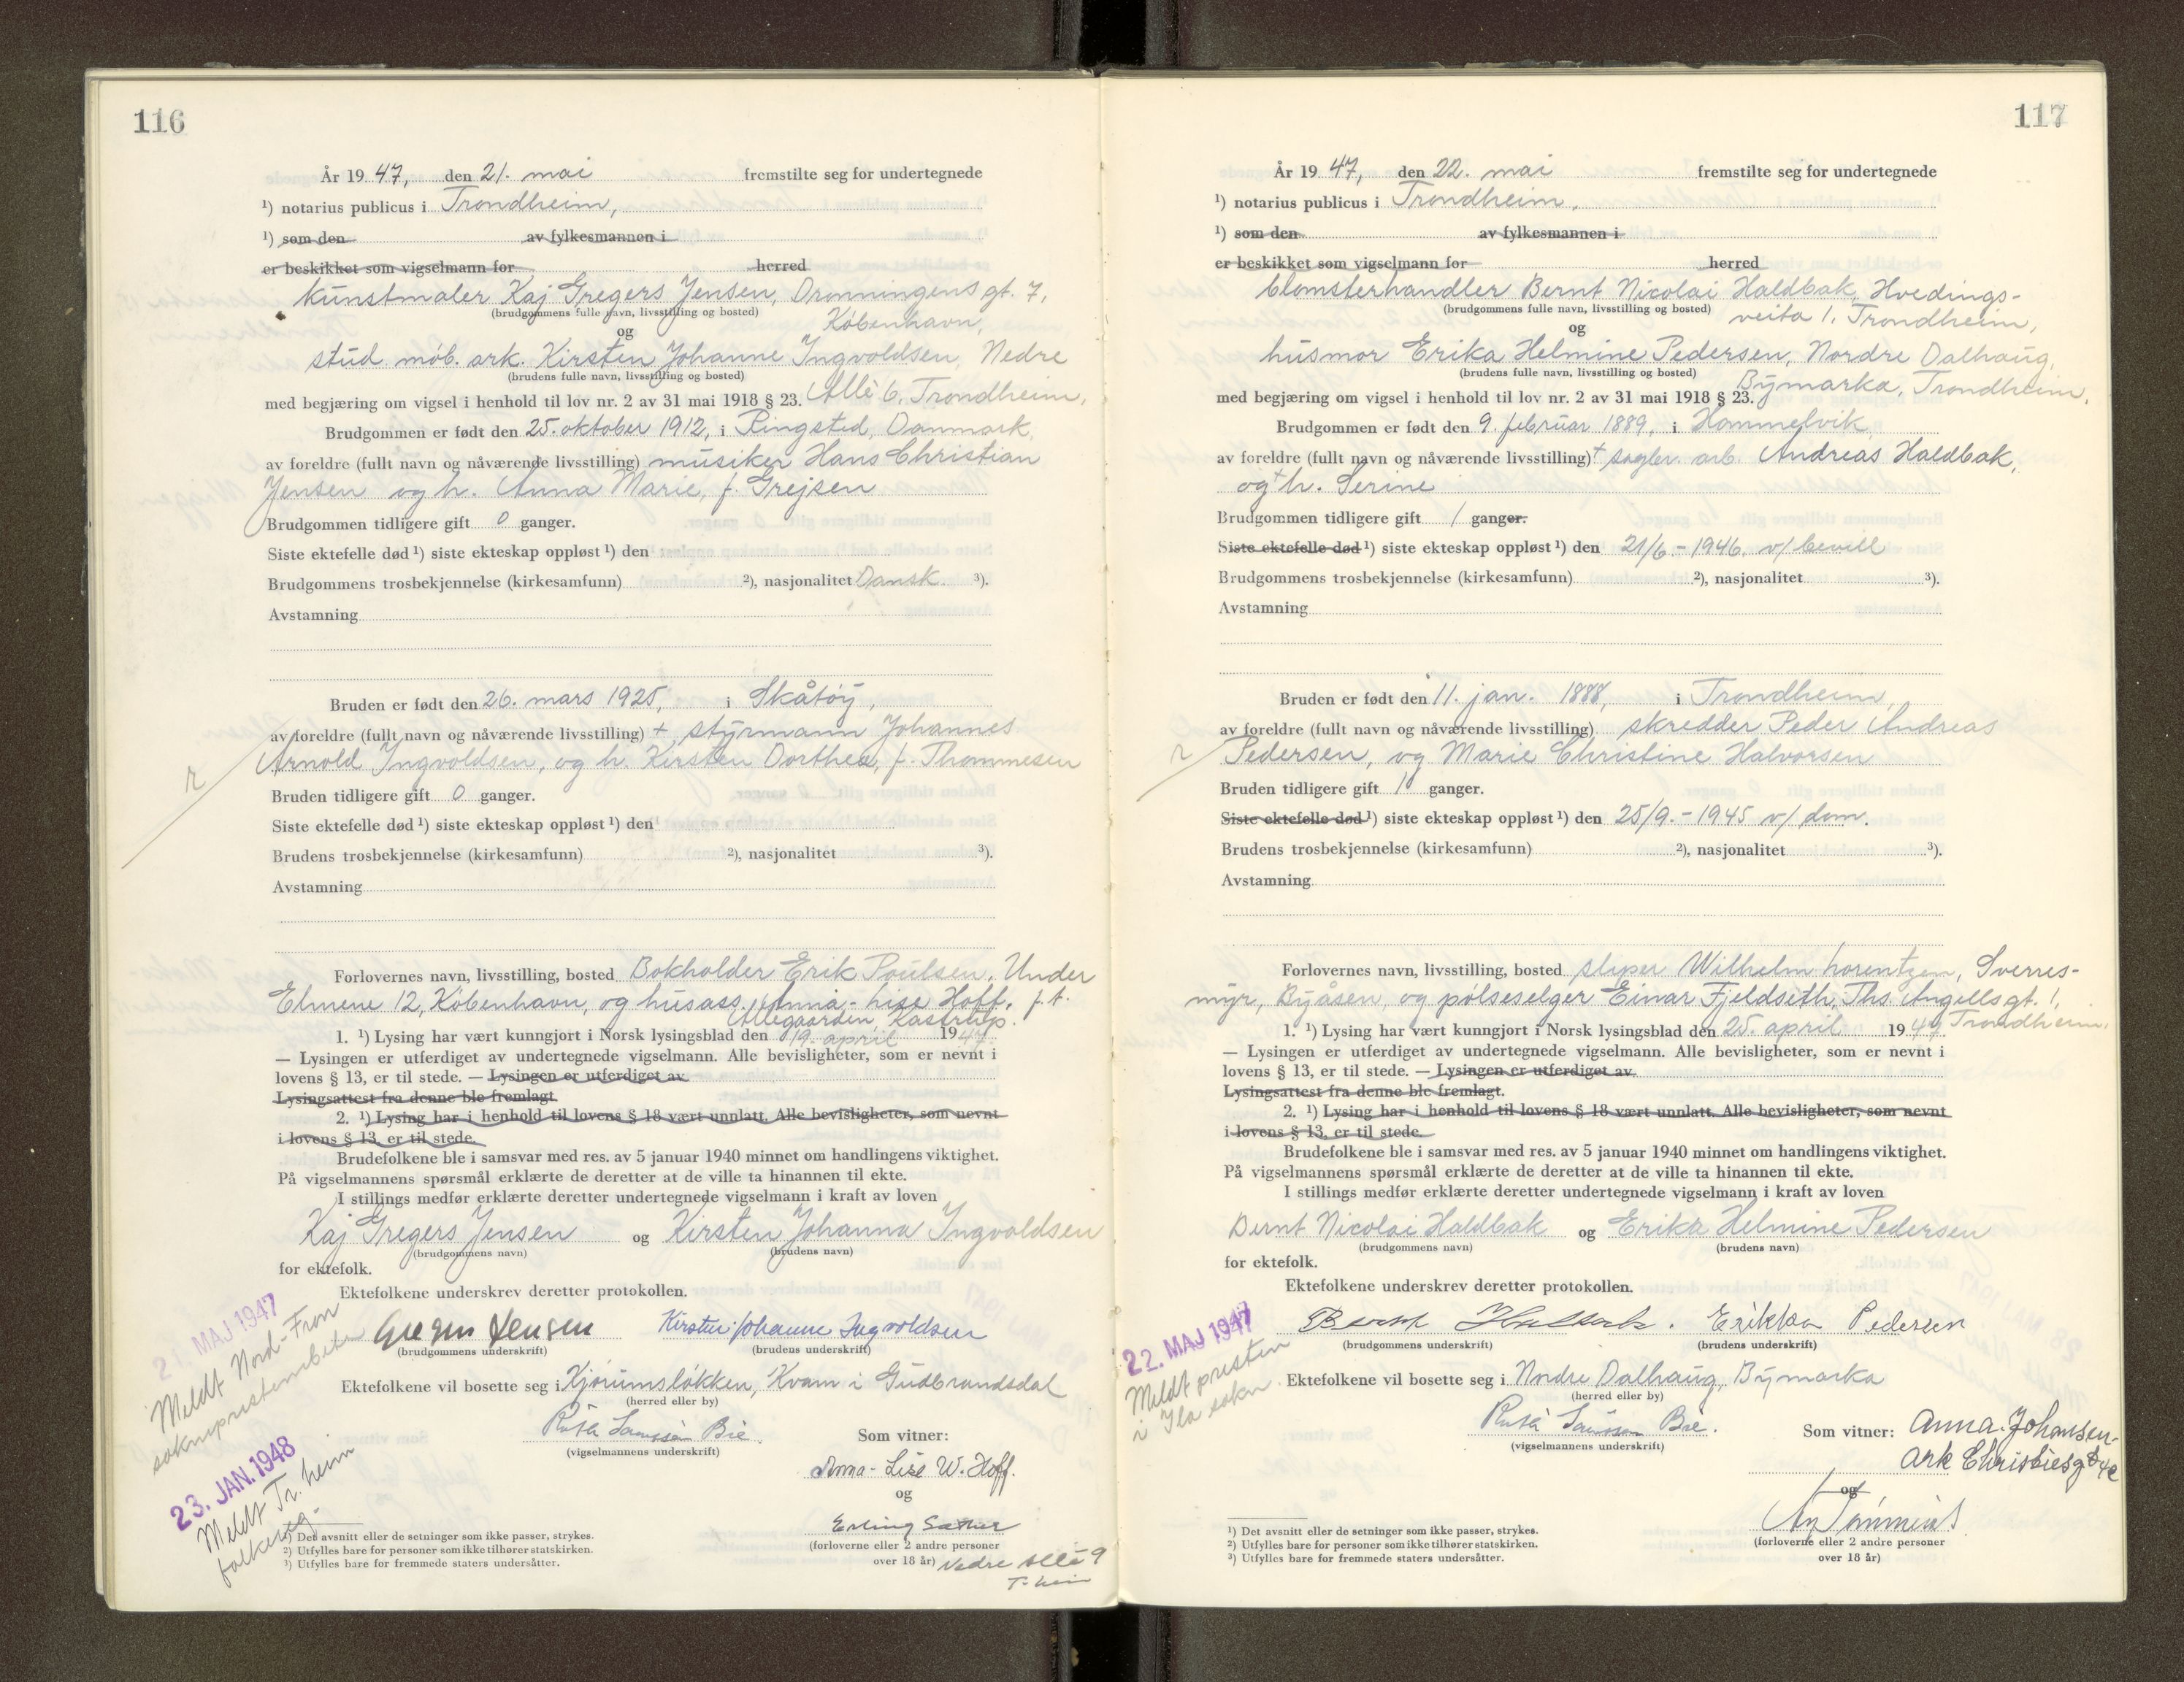 116
År 19 47, den 21. mai fremstilte seg for undertegnede
¹) notarius publicus i Trondheim,
¹) som den av fylkesmannen i
er beskikket som vigselmann for herred
kunstmaler Kaj Gregers Jensen, Dronningens gt. 7,
(brudgommens fulle navn, livsstilling og bosted) København,
og
stud. møb. ark. Kirsten Johanne Ingvoldsen, Nedre
(brudens fulle navn, livsstilling og bosted)
med begjæring om vigsel i henhold til lov nr. 2 av 31 mai 1918 § 23. Allè 6, Trondheim,
Brudgommen er født den 25. oktober 1912, i Ringsted, Danmark,
av foreldre (fullt navn og nåværende livsstilling) musiker Hans Christian
Jensen og h. Anna Marie, f. Grejsen
Brudgommen tidligere gift 0 ganger.
Siste ektefelle død ¹) siste ekteskap oppløst ¹) den
Brudgommens trosbekjennelse (kirkesamfunn) ²), nasjonalitet Dansk. ³).
Avstamning
Bruden er født den 26. mars 1925, i Skåtøy,
av foreldre (fullt navn og nåværende livsstilling) + styrmann Johannes
Arnold Ingvoldsen, og h. Kirsten Dorthea, f. Thommesen
Bruden tidligere gift 0 ganger.
Siste ektefelle død ¹) siste ekteskap oppløst ¹) den
Brudens trosbekjennelse (kirkesamfunn) ²), nasjonalitet ³).
Avstamning
Forlovernes navn, livsstilling, bosted Bokholder Erik Poulsen, Under
Elmene 12, København, og husass. Anna-Lise Hoff, f.t.
Allegaarden, Kastrup.
1. ¹) Lysing har vært kunngjort i Norsk lysingsblad den 19. april 19 47
— Lysingen er utferdiget av undertegnede vigselmann. Alle bevisligheter, som er nevnt i
lovens § 13, er til stede. — Lysingen er utferdiget av
Lysingsattest fra denne ble fremlagt.
2. ¹) Lysing har i henhold til lovens § 18 vært unnlatt. Alle bevisligheter, som nevnt
i lovens § 13, er til stede.
Brudefolkene ble i samsvar med res. av 5 januar 1940 minnet om handlingens viktighet.
På vigselmannens spørsmål erklærte de deretter at de ville ta hinannen til ekte.
I stillings medfør erklærte deretter undertegnede vigselmann i kraft av loven
Kaj Gregers Jensen og Kirsten Johanna Ingvoldsen
(brudgommens navn) (brudens navn)
for ektefolk.
Ektefolkene underskrev deretter protokollen.
21. MAJ 1947
Meldt Nord-Fron
sokneprestembete
Gregers Jensen Kirsten Johanne Ingvoldsen
(brudgommens underskrift) (brudens underskrift)
Ektefolkene vil bosette seg i Kjørumsløkken, Kvam i Gudbrandsdal
(herred eller by)
(vigselmannens underskrift)
Som vitner:
Anna-Lise W. Hoff.
og
Erling Sæther
(forloverne eller 2 andre personer
over 18 år) Nedre Allé 9
T-heim
23. JAN. 1948
Meldt Tr.heim
folkereg.
¹) Det avsnitt eller de setninger som ikke passer, strykes.
²) Utfylles bare for personer som ikke tilhører statskirken.
³) Utfylles bare for fremmede staters undersåtter.
117
År 19 47, den 22. mai fremstilte seg for undertegnede
¹) notarius publicus i Trondheim,
¹) som den av fylkesmannen i
er beskikket som vigselmann for herred
blomsterhandler Bernt Nicolai Haldbak, Hvedings-
(brudgommens fulle navn, livsstilling og bosted) veita 1, Trondheim,
og
husmor Erika Helmine Pedersen, Nordre Dalhaug,
(brudens fulle navn, livsstilling og bosted) Bymarka, Trondheim,
med begjæring om vigsel i henhold til lov nr. 2 av 31 mai 1918 § 23.
Brudgommen er født den 9. februar 1889, i Hommelvik,
av foreldre (fullt navn og nåværende livsstilling) + sagbr. arb. Andreas Haldbak,
og + h. Serine
Brudgommen tidligere gift 1 ganger.
Siste ektefelle død ¹) siste ekteskap oppløst ¹) den 21/6.-1946. v/ bevill
Brudgommens trosbekjennelse (kirkesamfunn) ²), nasjonalitet ³).
Avstamning
Bruden er født den 11. jan. 1888, i Trondheim,
av foreldre (fullt navn og nåværende livsstilling) skredder Peder Andreas
Pedersen, og Marie Christine Halvorsen
Bruden tidligere gift 1 ganger.
Siste ektefelle død ¹) siste ekteskap oppløst ¹) den 25/9.-1945 v/ dom.
Brudens trosbekjennelse (kirkesamfunn) ²), nasjonalitet ³).
Avstamning
Forlovernes navn, livsstilling, bosted sliper Wilhelm Lorentzen, Sverres-
myr, Byåsen, og pølseselger Einar Fjeldseth, Ths. Angells gt. 1,
1. ¹) Lysing har vært kunngjort i Norsk lysingsblad den 25. april 19 47 Trondheim,
— Lysingen er utferdiget av undertegnede vigselmann. Alle bevisligheter, som er nevnt i
lovens § 13, er til stede. — Lysingen er utferdiget av
Lysingsattest fra denne ble fremlagt.
2. ¹) Lysing har i henhold til lovens § 18 vært unnlatt. Alle bevisligheter, som nevnt
i lovens § 13, er til stede.
Brudefolkene ble i samsvar med res. av 5 januar 1940 minnet om handlingens viktighet.
På vigselmannens spørsmål erklærte de deretter at de ville ta hinannen til ekte.
I stillings medfør erklærte deretter undertegnede vigselmann i kraft av loven
Bernt Nicolai Haldbak og Erika Helmine Pedersen
(brudgommens navn) (brudens navn)
for ektefolk.
Ektefolkene underskrev deretter protokollen.
22. MAJ 1947
Meldt presten
i Ila sokn
Bernt Haldbak. Erikka Pedersen
(brudgommens underskrift) (brudens underskrift)
Ektefolkene vil bosette seg i Nordre Dalhaug, Bymarka
(herred eller by)
(vigselmannens underskrift)
Som vitner: Anna Johansen
Ark Christiesgt 4c
og
(forloverne eller 2 andre personer
over 18 år)
¹) Det avsnitt eller de setninger som ikke passer, strykes.
²) Utfylles bare for personer som ikke tilhører statskirken.
³) Utfylles bare for fremmede staters undersåtter.